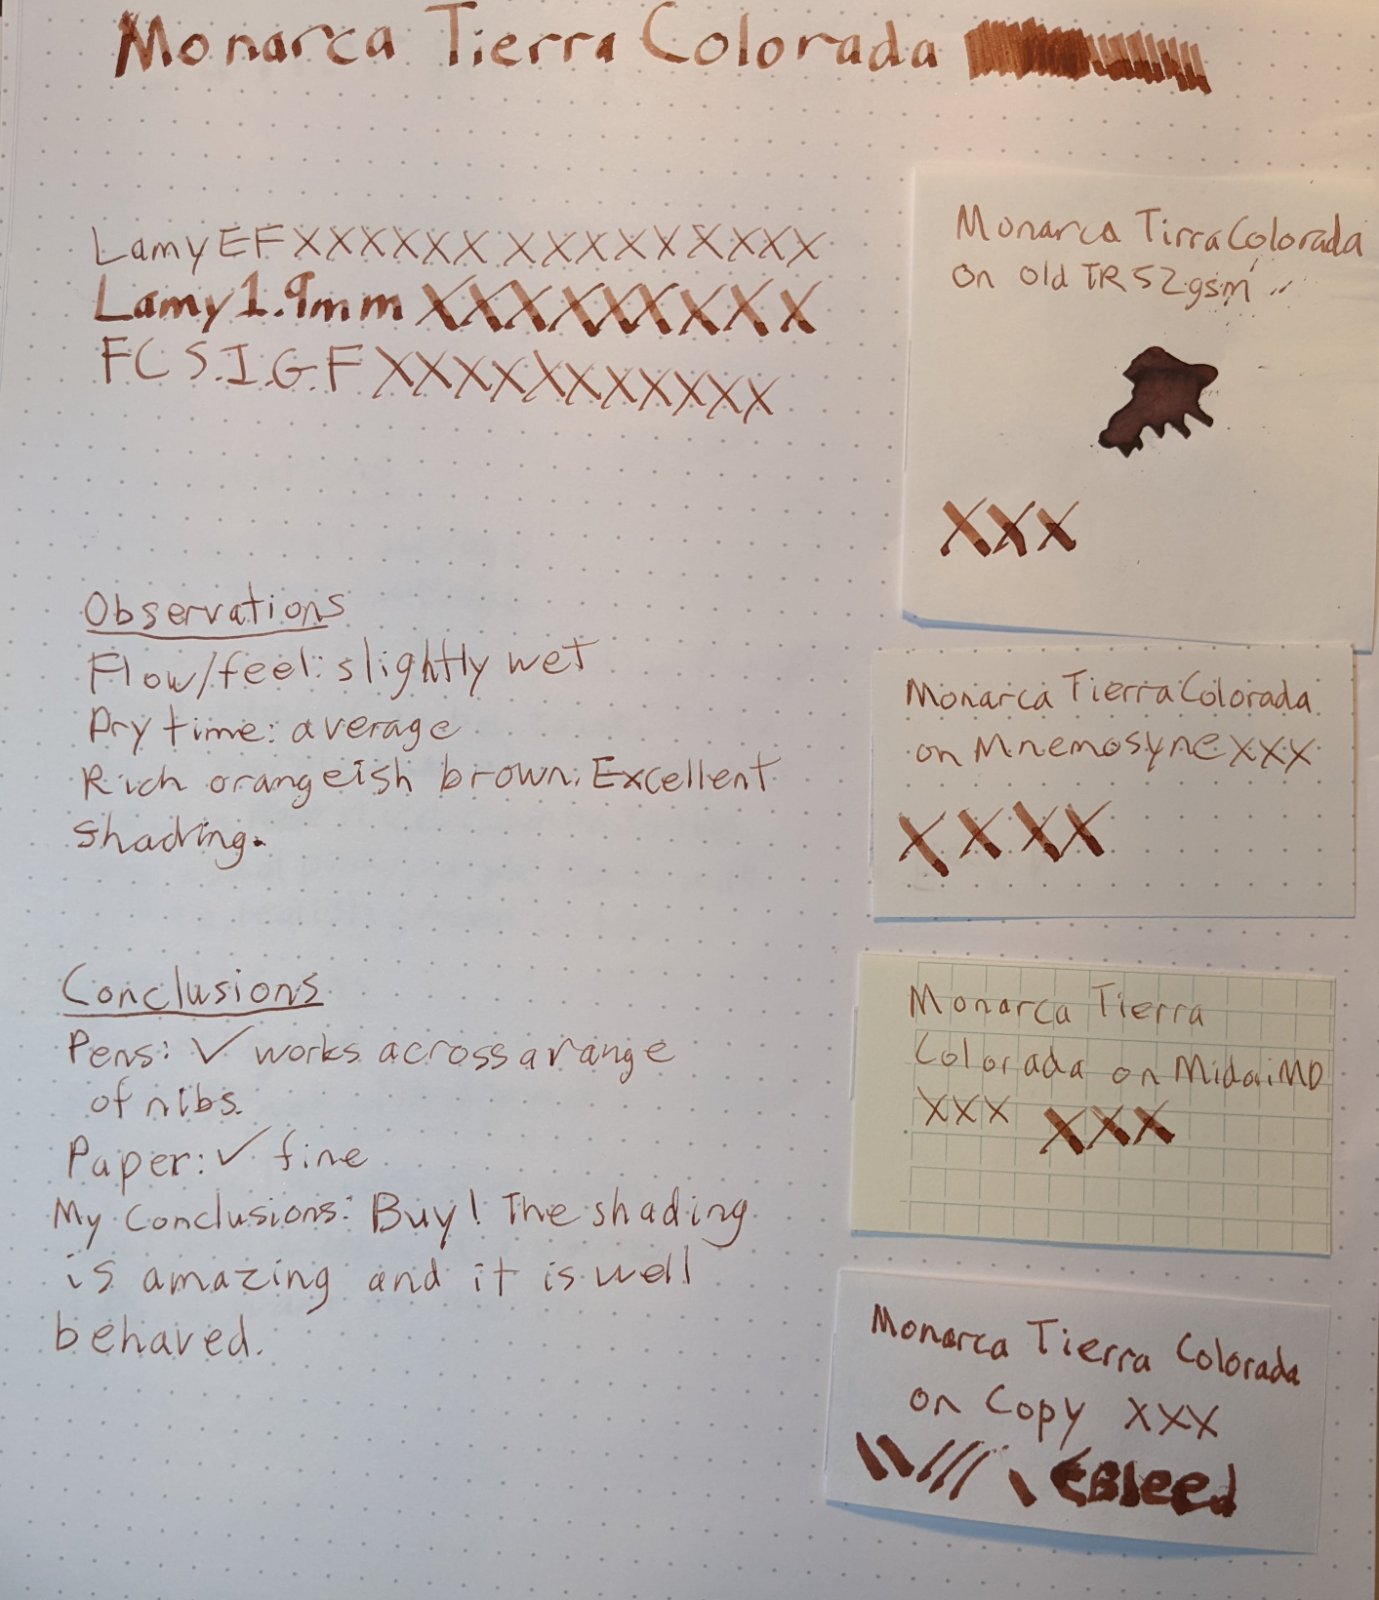 Monarca Tierra Colorada
Lamy EF XXXXXX XXXXXX XXXX
Lamy 1.9mm XXXXXXXX
FC S.I.G.F XXXXXXXXXXX
Observations
Flow/feel: slightly wet
Dry time: average
Rich orangeish brown. Excellent
shading.
Conclusions
Pens: ✓ works across a range
of nibs.
Paper: ✓ fine
My Conclusions: Buy! The shading
is amazing and it is well
behaved.
Monarca Tirra Colorada
on old TR 52gsm
XXX
Monarca Tierra Colorada
on Mnemosyne XXX
XXXX
Monarca Tierra
Colorada on Midori MD
XXX XXX
Monarca Tierra Colorada
on Copy XXX
Bleed